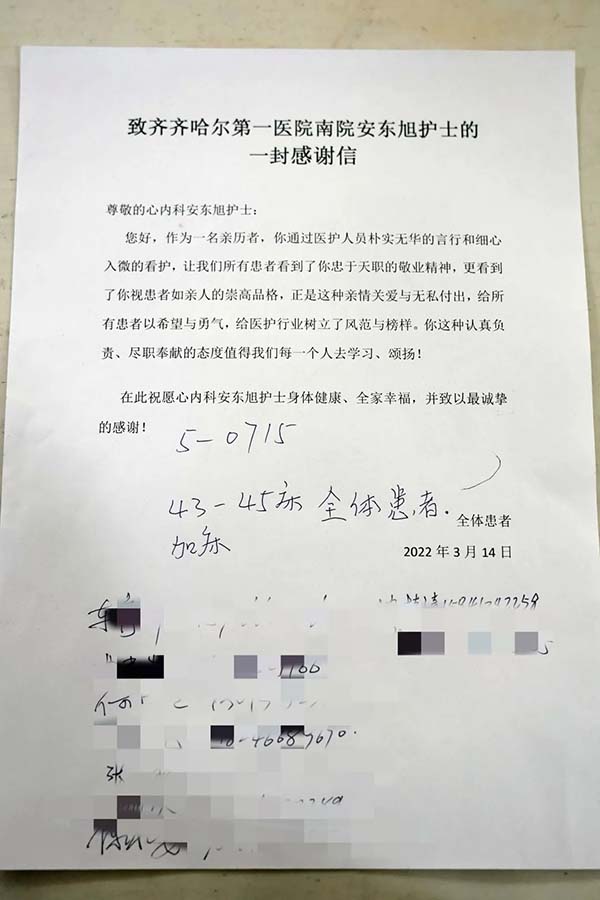 致齐齐哈尔第一医院南院安东旭护士的
一封感谢信
尊敬的心内科安东旭护士：
您好，作为一名亲历者，你通过医护人员朴实无华的言行和细心
入微的看护，让我们所有患者看到了你忠于天职的敬业精神，更看到
了你视患者如亲人的崇高品格，正是这种亲情关爱与无私付出，给所
有患者以希望与勇气，给医护行业树立了风范与榜样。你这种认真负
责、尽职奉献的态度值得我们每一个人去学习、颂扬！
在此祝愿心内科安东旭护士身体健康、全家幸福，并致以最诚挚
的感谢！
5-0715
43-45床 全体患者.
加床
全体患者
2022 年 3 月 14 日
张